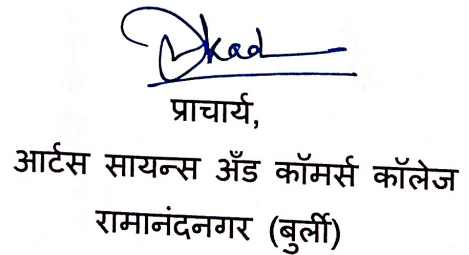 प्राचार्य,
आर्टस सायन्स अँड कॉमर्स कॉलेज
रामानंदनगर (बुर्ली)